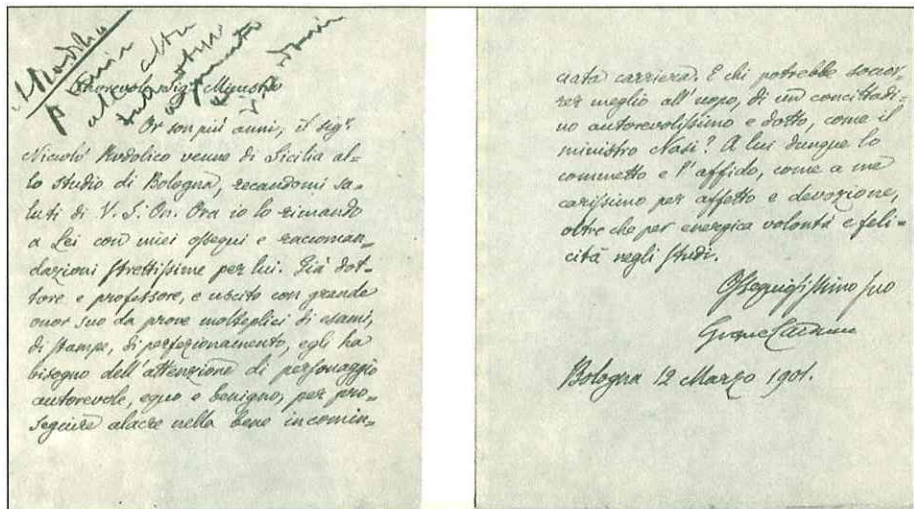 Onorevole Sig. Ministro
Or son più anni, il sigr.
Niccolò Rodolico venne di Sicilia al=
lo studio di Bologna, recandomi sa=
luti di V. S. On. Ora io lo rimando
a Lei con miei ossequi e raccoman=
dazioni strettissime per lui. Già dot=
tore e professore, e uscito con grande
onor suo da prove molteplici di esami,
di stampe, di perfezionamento, egli ha
bisogno dell'attenzione di personaggio
autorevole, equo e benigno, per pro=
seguire alacre nella bene incomin=
ciata carriera. E chi potrebbe soccor=
rer meglio all'uopo, di un concittadi=
no autorevolissimo e dotto, come il
ministro Nasi? A lui dunque lo
commetto e l'affido, come a me
carissimo per affetto e devozione,
oltre che per energica volontà e feli=
cità negli studi.
Ossequiosissimo suo
Bologna 12 Marzo 1901.